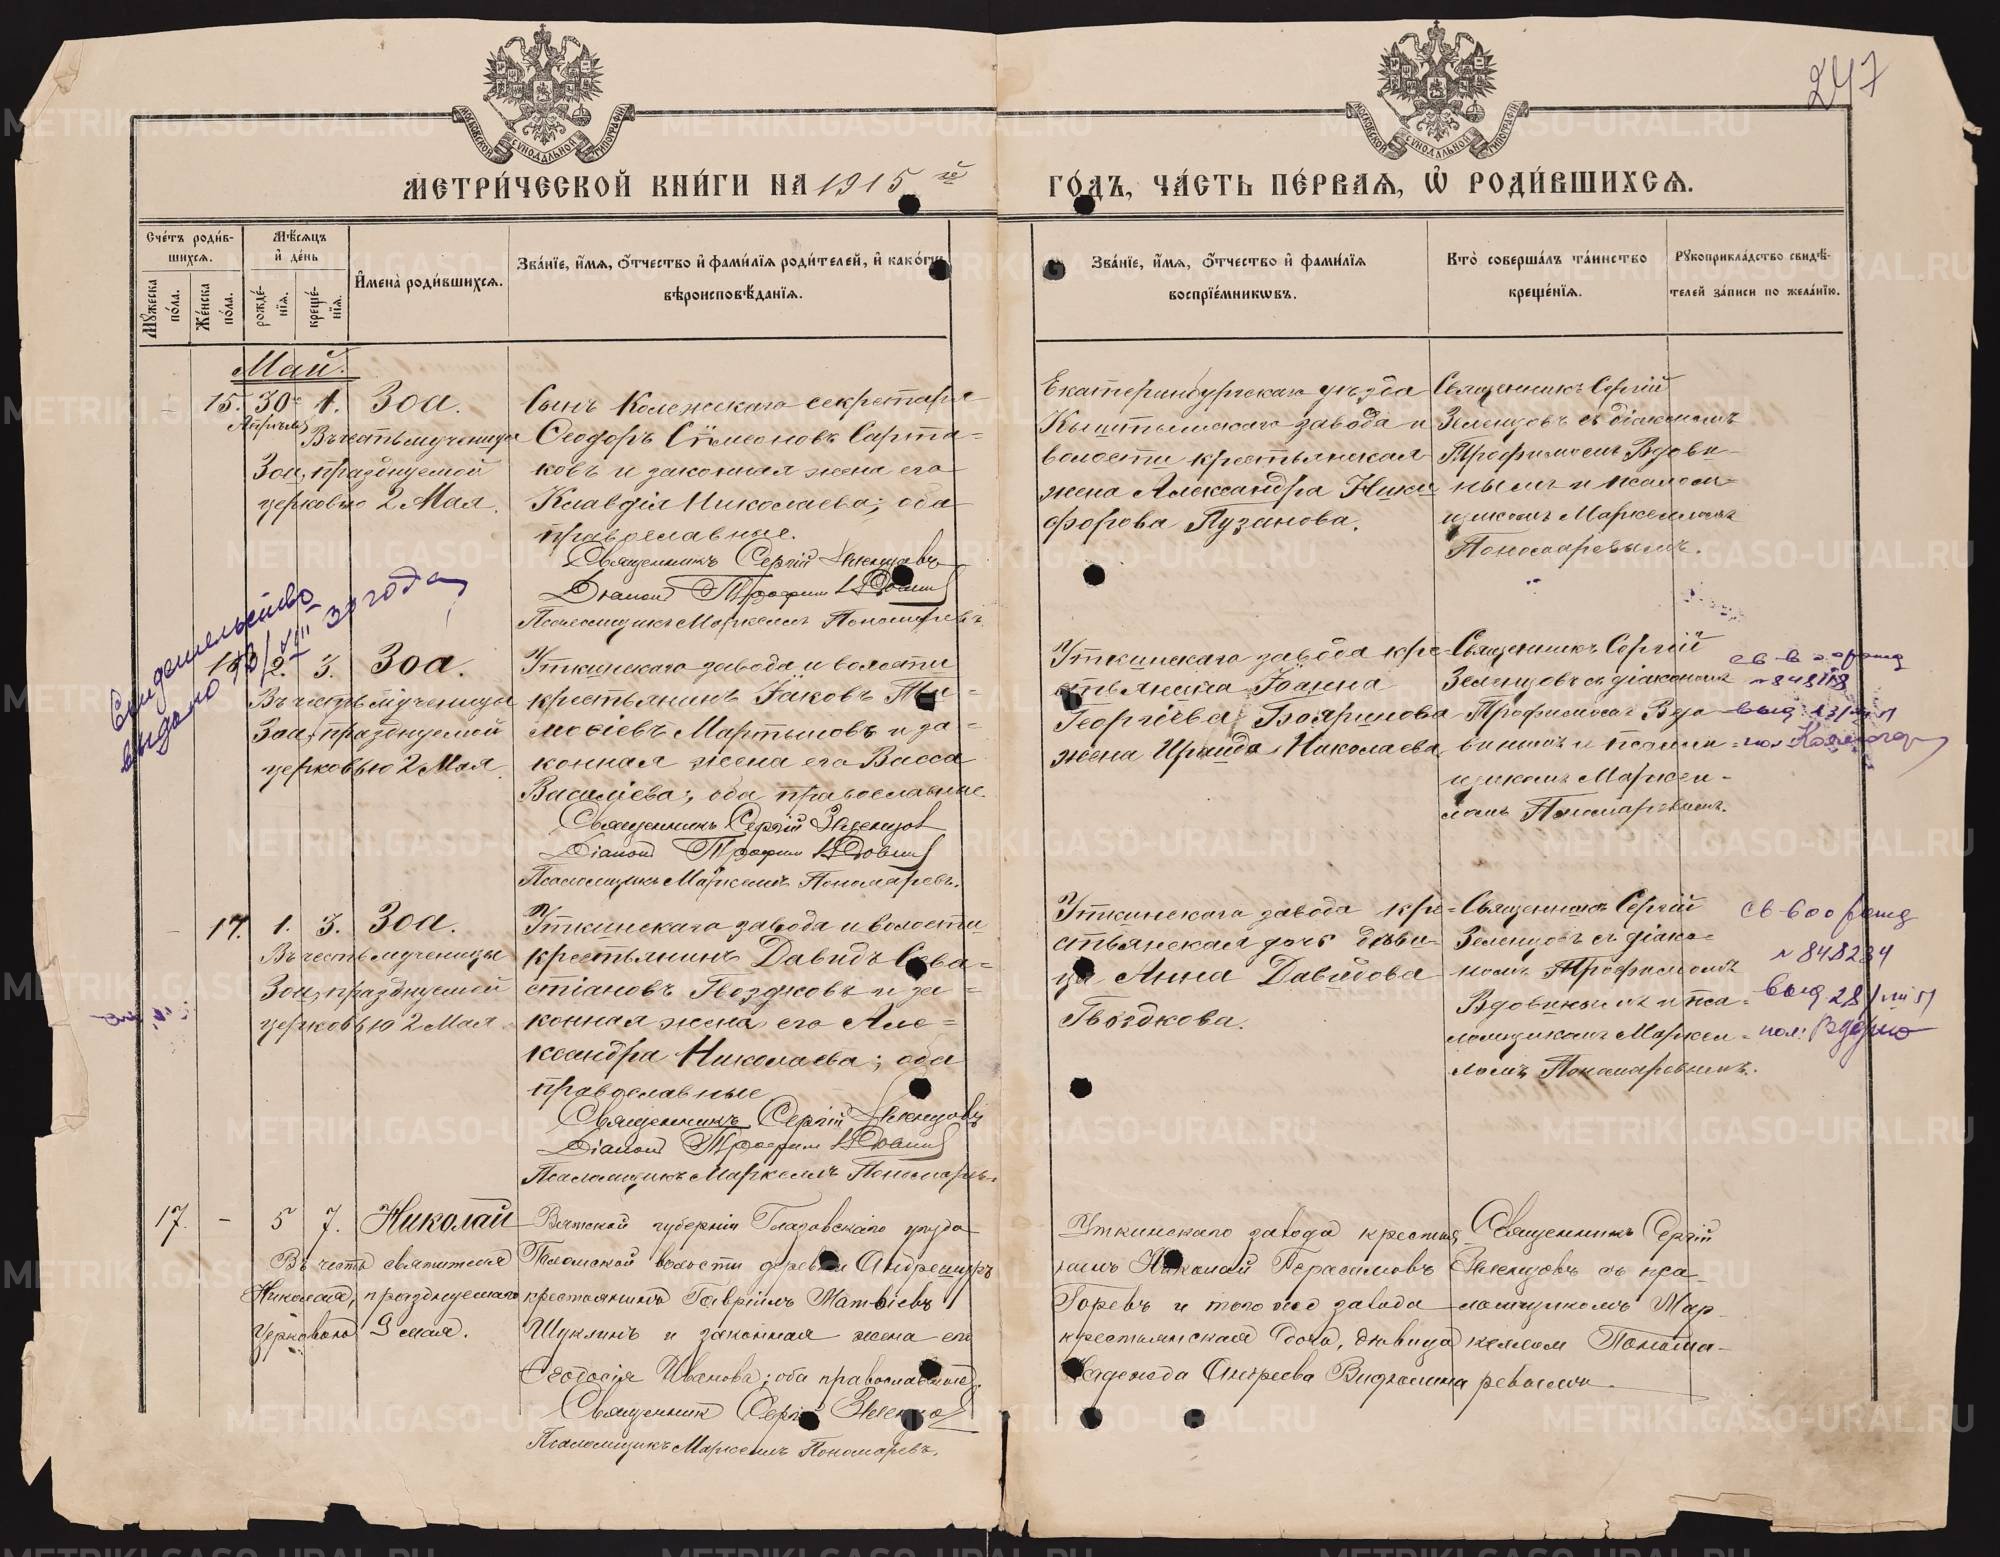 247
МОСКОВСКОЙ СѴНОДАЛЬНОЙ ТИПОГРАФІИ
МОСКОВСКОЙ СѴНОДАЛЬНОЙ ТИПОГРАФІИ
МЕТРИ́ЧЕСКОЙ КНИ́ГИ НА 1915 й
ГО́ДЪ, ЧА́СТЬ ПЕ́РВАѦ, Ѡ҆ РОДИ́ВШИХСѦ.
Сче́тъ роди́в-
шихсѧ.
Мꙋ́жеска по́ла.
Же́нска по́ла.
Мѣ́сѧцъ
и҆ де́нь
рожде́-
нїѧ.
креще́-
нїѧ.
И҆мена̀ роди́вшихсѧ.
Зва́нїе, и҆́мѧ, ѻ҆́тчество и҆ фами́лїѧ роди́телей, и҆ како́гѡ
вѣроисповѣ́данїѧ.
Зва́нїе, и҆́мѧ, ѻ҆́тчество и҆ фами́лїѧ
воспрїе́мникѡвъ.
Кто̀ соверша́лъ та́инство
креще́нїѧ.
Рꙋкоприкла́дство свидѣ́-
телей за́писи по жела́нїю.
Май.
15. 30 1. Зоа.
Апрѣля
Въ честь мученицы
Зои, празднуемой
церковью 2 Мая.
Сынъ Колежскаго секретаря
Ѳеодоръ Сѵмеоновъ Сарта-
ковъ и законная жена его
Клавдія Николаева; оба
православные.
Священникъ Сергій Зеленцовъ
Діаконъ Трофим Вдовин
Псаломщикъ Маркеллъ Пономаревъ
Екатеринбургскаго уѣзда
Кыштымскаго завода и
волости крестьянская
жена Александра Ники
форова Пузанова.
Священникъ Сергій
Зеленцовъ съ діакономъ
Трофимомъ Вдови-
нымъ и псалом-
щикомъ Маркелломъ
Пономаревымъ.
Свидетельство
выдано
30 года
16. 2. 3. Зоа.
Въ честь мученицы
Зои, празднуемой
церковью 2 Мая.
Уткинскаго завода и волости
крестьянинъ Іаковъ Ти-
моѳіевъ Мартыновъ и за-
конная жена его Васса
Василіева; оба православные.
Священникъ Сергій Зеленцов
Діаконъ Трофим Вдовин
Псаломщикъ Маркеллъ Пономаревъ.
Уткинскаго завода кре-
стьянина Іоанна
Георгіева Бояринова
жена Ираида Николаева
Священникъ Сергій
Зеленцовъ съ діакономъ
Трофимомъ Вдо-
винымъ и псалом-
щикомъ Маркел-
ломъ Пономаревымъ.
17. 1. 3. Зоа.
Въ честь мученицы
Зои, празднуемой
церковью 2 Мая.
Уткинскаго завода и волости
крестьянинъ Давидъ Сева-
стіановъ Гвоздковъ и за-
конная жена его Але-
ксандра Николаева; оба
православные
Священникъ Сергій Зеленцовъ
Діаконъ Трофим Вдовин
Псаломщикъ Маркеллъ Пономаревъ
Уткинскаго завода кре-
стьянская дочь дѣви-
ца Анна Давидова
Гвоздкова.
Священникъ Сергій
Зеленцовъ съ діако-
номъ Трофимомъ
Вдовинымъ и пса-
ломщикомъ Маркел-
ломъ Пономаревымъ.
№ 848284
17. - 5 7. Николай
Въ честь святителя
Николая, празднуемаго
Церковью 9 мая.
Вятской губерніи Глазовскаго уѣзда
волости деревни
крестьянинъ Гавріилъ Матвіевъ
Шуклинъ и законная жена его
Ѳеодосія Иванова; оба православные.
Священник Сергій Зеленцов
Псаломщикъ Маркеллъ Пономаревъ.
Уткинскаго завода крестья-
нинъ Николай Герасимовъ
Горевъ и того же завода
крестьянская дочь, дѣвица
Надежда Андреева
Священникъ Сергій
Зеленцовъ съ пса-
ломщикомъ Мар-
келлом Понома-
ревымъ